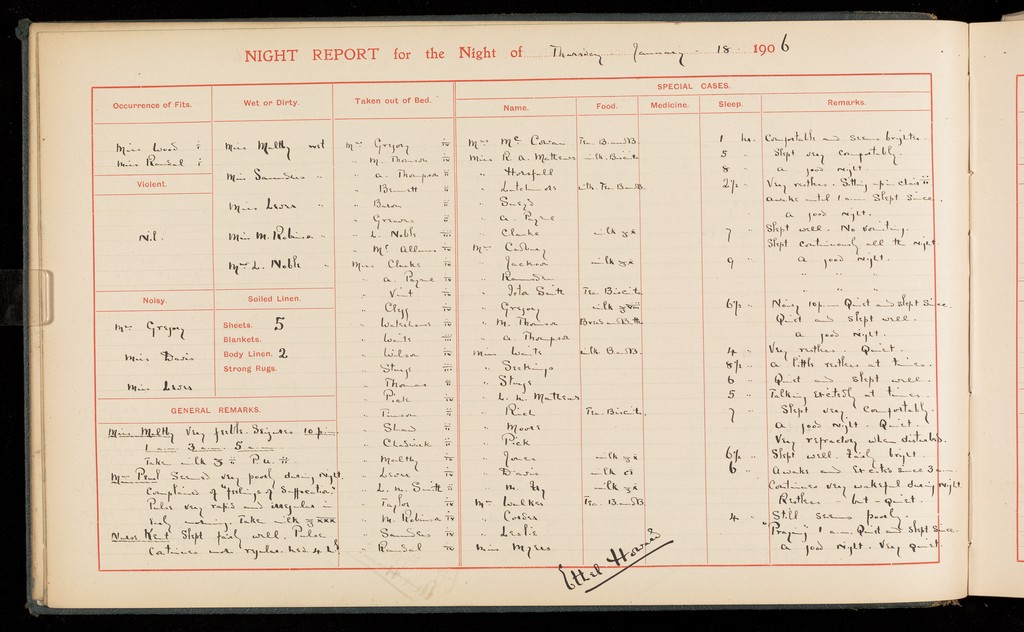 NIGHT REPORT for the Night of Thursday January 18 1906
Occurrence of Fits.
Miss Wood i
Miss Randal i
Violent.
Nil.
Noisy.
Mrs Gregory
Miss Davis
Miss Lever
Wet or Dirty.
Miss Maltby wet
Miss Saunders "
Miss Lever "
Miss M. Robinson "
Mrs L. Noble "
Soiled Linen.
Sheets. 5
Blankets.
Body Linen. 2
Strong Rugs.
GENERAL REMARKS.
Miss Maltby very feeble. 10 p.m.
1 am 3 am 5 am
Take milk
Mrs Pearl Seemed very poorly during night.
Complained of "feelings of Suffocation"
Pulse very rapid and irregular in
early morning. Take milk
Nurse Kent Slept fairly well. Pulse
Continues more regular.
Taken out of Bed.
Mrs Gregory iv
" M. Thomson iv
" A. Thompson ii
" Bennett ii
" Bacon iv
" Greaves iv
" L. Noble iii
" Mc Allum iv
Miss Clarke iv
" A. Payne iv
" Vint ii
" Clegg iv
" iv
" Waits iii
" Wilson iv
" Sturge iii
" Thomas ii
" Pick iv
" ii
" Shaw iv
" Chadwick iv
" Maltby iv
" Lever ii
" L. M. Smith ii
" Taylor iv
" M. Robinson iv
" Saunders iv
" Randal iv
SPECIAL CASES.
Name. Food. Medicine. Sleep. Remarks.
Mrs Mc Cowan Tea. B. and B. 1 hr. Comfortable and seems brighter.
Miss R. A. Mathews milk. Biscuits 5 " Slept very comfortably.
" Horsfall 8 " A good night.
" milk Tea B and B. 2½ " Very restless. Sitting up in chair
" Awake until 1 am Slept Since.
" A. Payne A good night.
" Clarke milk 7 " Slept well. No vomiting.
Mrs Slept continuously all the night.
" Jackson milk 9 " A good night.
" Ramsden " " "
" Iota Smith Tea. Biscuits " " "
" Gregory milk 6½ " Noisy 10 pm Quiet and slept Since.
" M. Thomson Bread and Butter Quiet and Slept well.
" A. Thompson A good night.
Miss Waits milk. B and B. 4 " Very restless. Quiet.
" Seekings 8½ " A little restless at times.
" Sturge 6 " Quiet and Slept well.
" L. M. Mathews 5 " Talking excitedly at times.
" Rich Tea. Biscuits. 7 " Slept very comfortably.
" Moore A good night. Quiet.
" Pick Very refractory when disturbed.
" Jones milk 6½ " Slept well. Fairly bright.
" Davis milk 6 " Awake and Excited since 3 am.
" M. milk Continues very wakeful during night.
Mrs Walker Tea. B and B. Restless - but - Quiet.
" 4 " Still seems poorly.
" Leslie "Praying" 1 am. Quiet and Slept Since.
Miss Myers A good night. Very quiet.
Ethel Howard